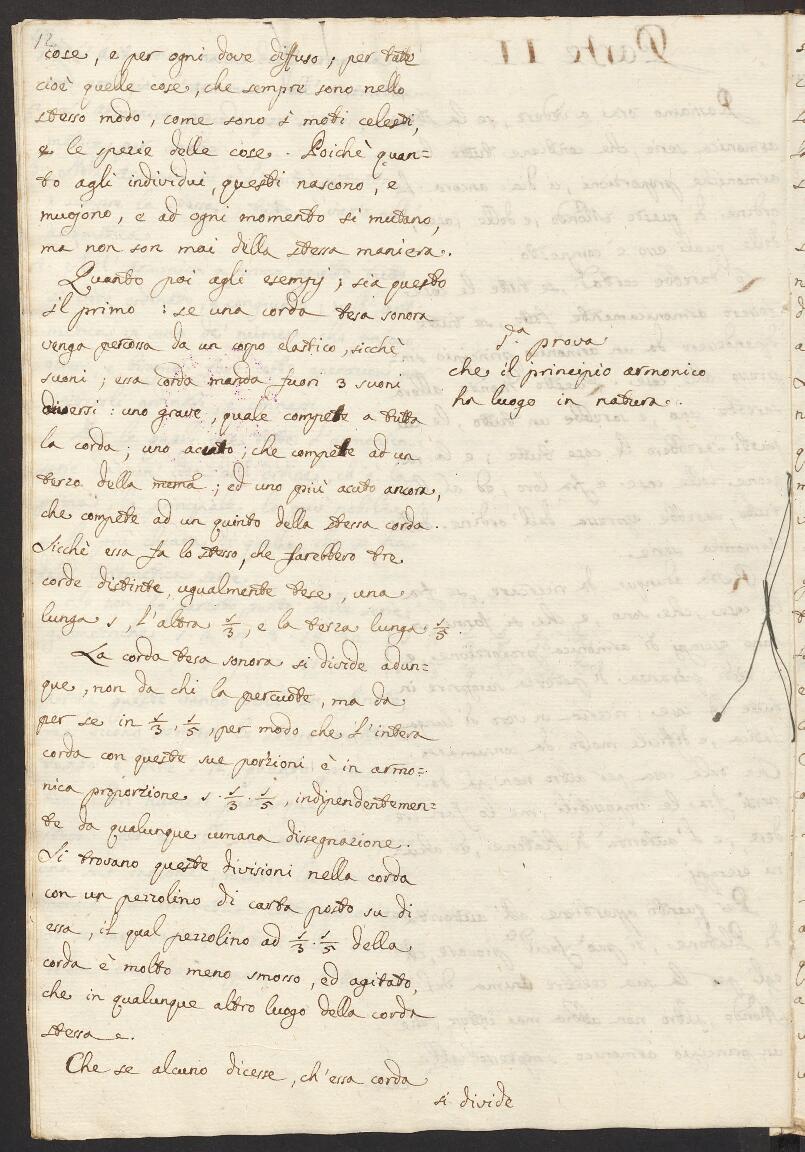 12
cose, e per ogni dove diffuso; per tali
cioè quelle cose, che sempre sono nello
stesso modo, come sono i moti celesti,
e le spezie delle cose. Poichè quan=
to agli individui, questi nascono, e
muojono, e ad ogni momento si mutano,
ma non son mai della stessa maniera.
Quanto poi agli esempj; sia questo
il primo: se una corda tesa sonora
venga percossa da un corpo elastico, sicchè
suoni; essa corda manda fuori 3 suoni
diversi: uno grave, quale compete a tutta
la corda; uno acuto; che compete ad un
terzo della medma; ed uno più acuto ancora,
che compete ad un quinto della stessa corda.
Sicchè essa fa lo stesso, che farebbero tre
corde distinte, ugualmente tese, una
lunga 1, l'altra 1/3, e la terza lunga 1/5.
La corda tesa sonora si divide adun=
que, non da chi la percuote, ma da
per se in 1/3, 1/5, per modo che l'intera
corda con queste sue porzioni è in armo=
nica proporzione 1. 1/3. 1/5, indipendentemen=
te da qualunque umana dissegnazione.
Si trovano queste divisioni nella corda
con un pezzolino di carta posto su di
essa, il qual pezzolino ad 1/3. 1/5 della
corda è molto meno smosso, ed agitato,
che in qualunque altro luogo della corda
stessa e.
Che se alcuno dicesse, ch'essa corda
si divide
1.a prova
che il principio armonico
ha luogo in natura.